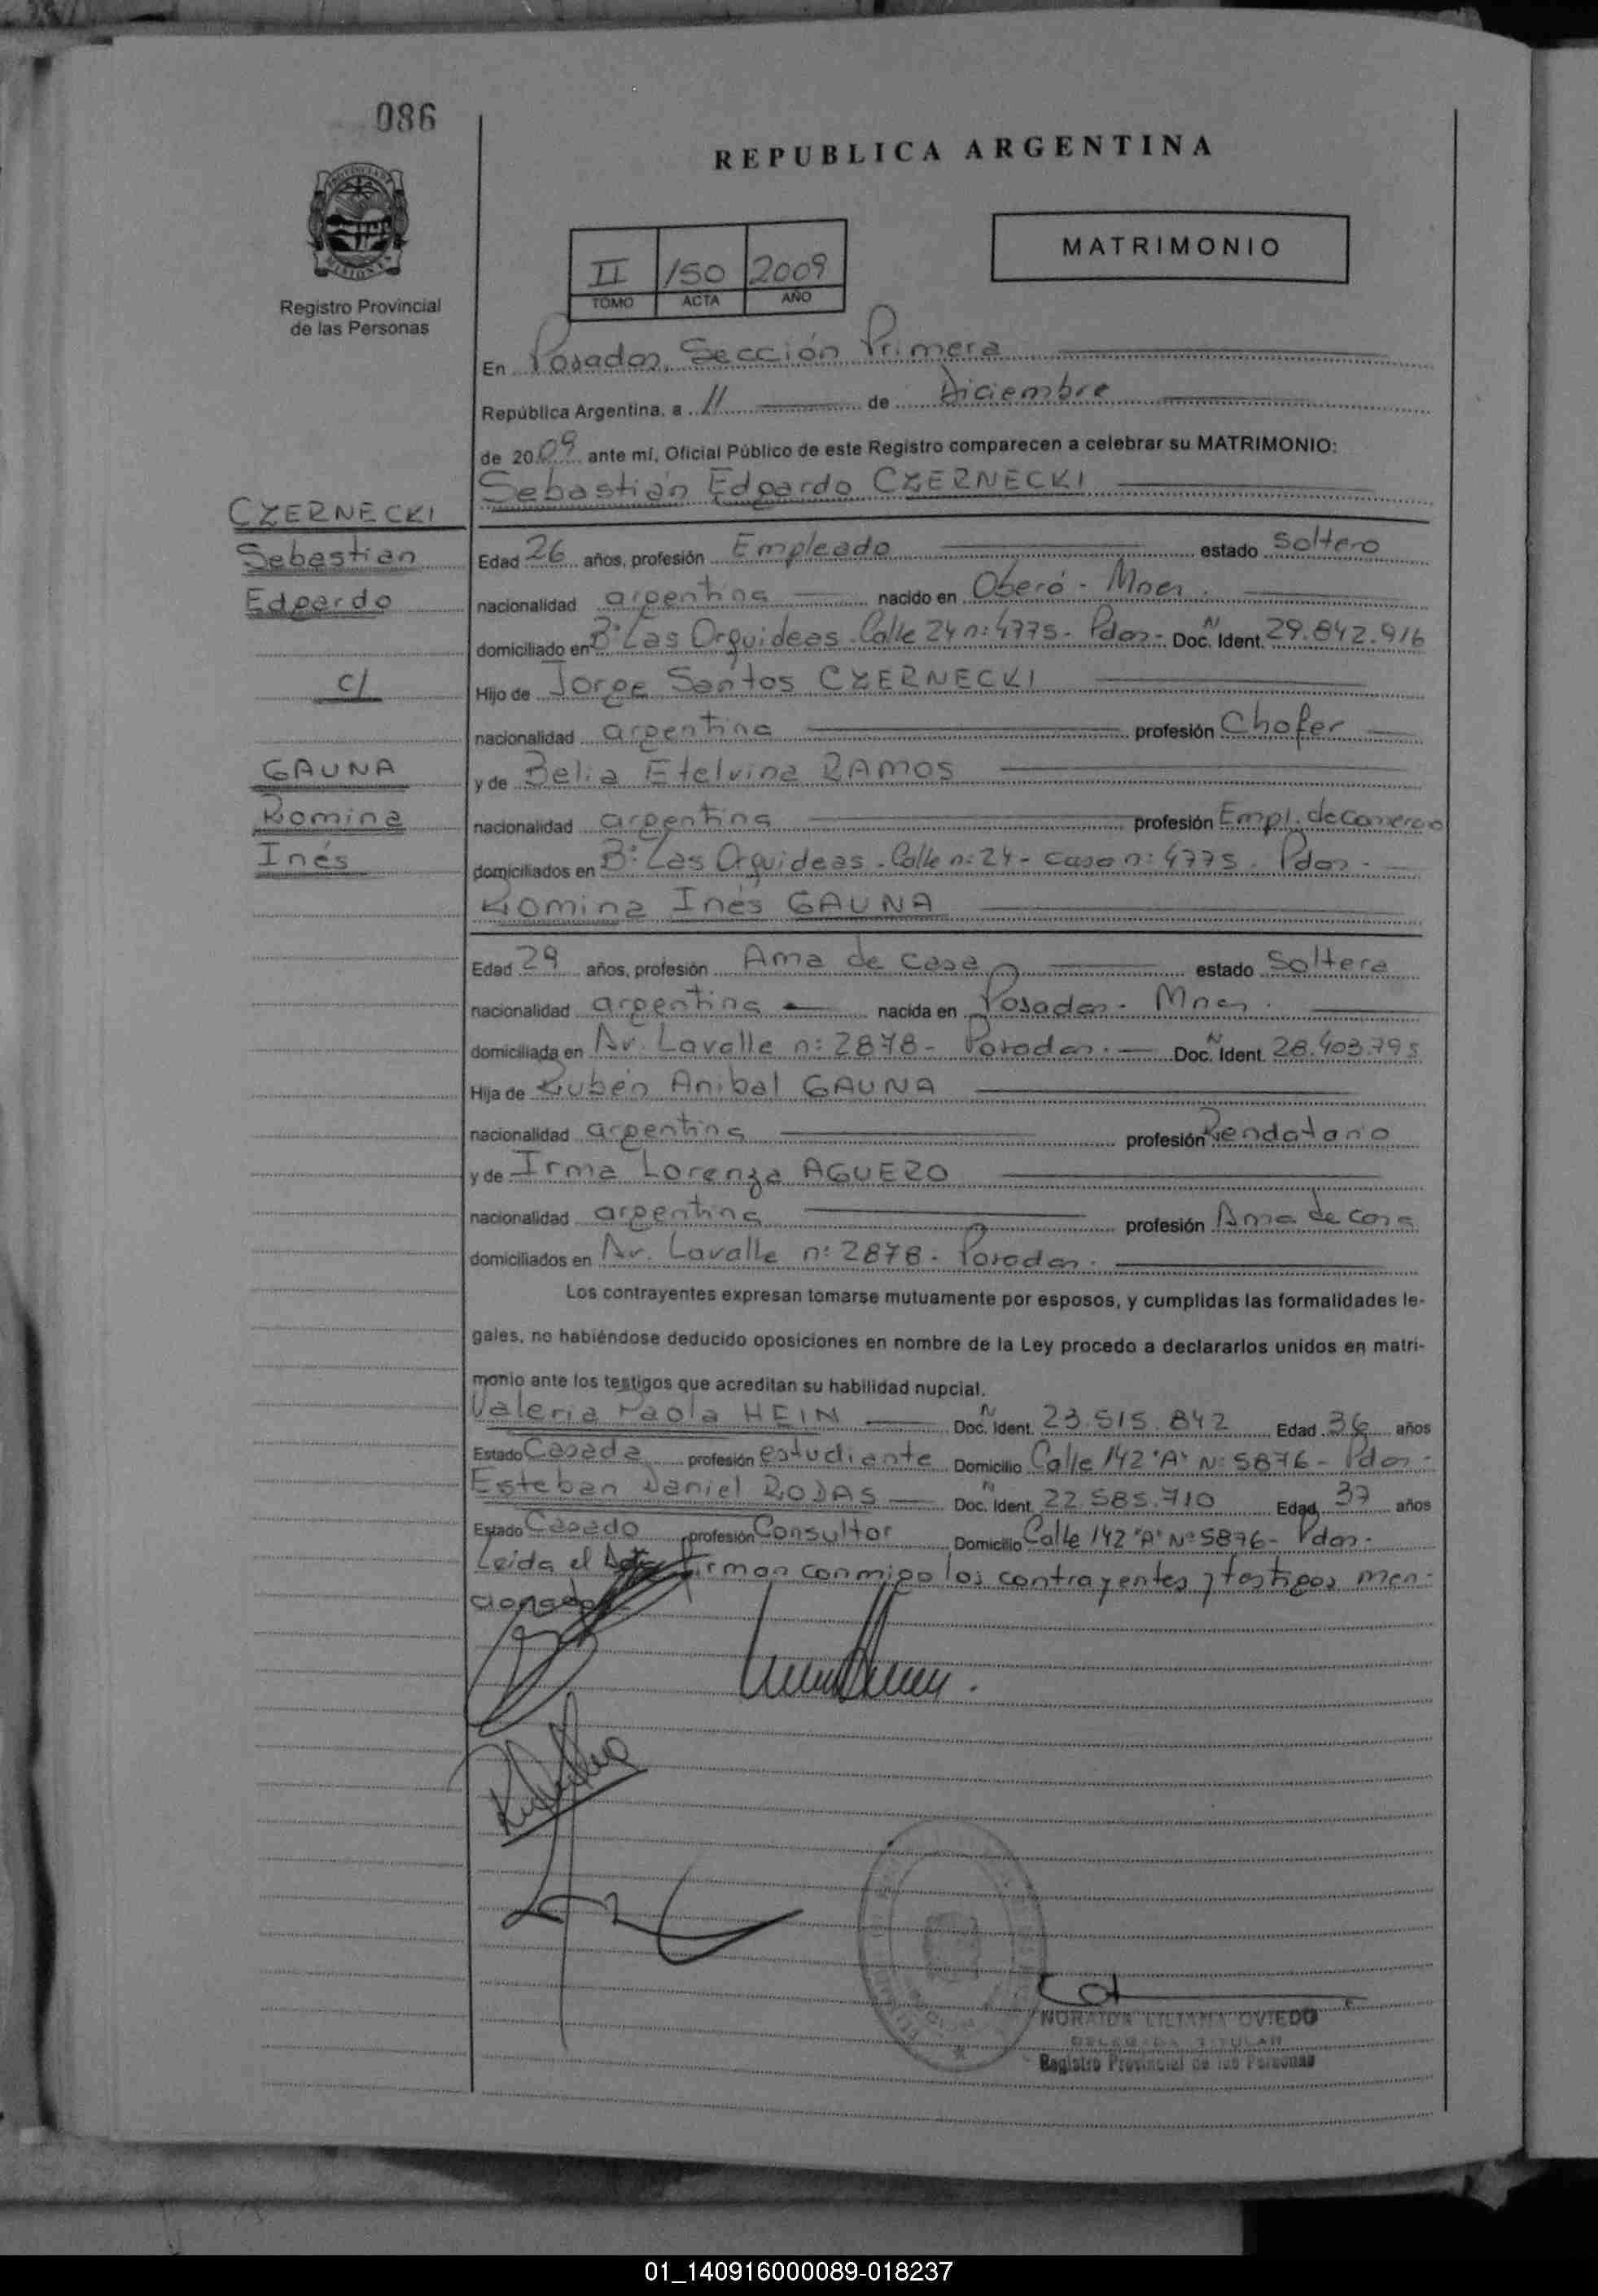 086
REPUBLICA ARGENTINA
MATRIMONIO
II 150 2009
TOMO ACTA AÑO
Registro Provincial
de las Personas
En Posadas, Sección Primera
República Argentina, a 11 de Diciembre
de 2009 ante mí, Oficial Público de este Registro comparecen a celebrar su MATRIMONIO:
Sebastián Edgardo CZERNECKI
CZERNECKI
Sebastián
Edgardo
c/
GAUNA
Romina
Inés
Edad 26 años, profesión Empleado estado Soltero
nacionalidad argentina nacido en Oberá - Mnes.
domiciliado en B° Las Orquideas - Calle 24 n: 4775 - Pdas - Doc. N Ident. 29.842.916
Hijo de Jorge Santos CZERNECKI
nacionalidad argentina profesión Chofer
y de Belia Etelvina RAMOS
nacionalidad argentina profesión Empl. de Comercio
domiciliados en B: Las Orquideas - Calle n: 24 - casa n: 4775 - Pdas -
Romina Inés GAUNA
Edad 29 años, profesión Ama de casa estado Soltera
nacionalidad argentina nacida en Posadas - Mnes.
domiciliada en Av. Lavalle n: 2878 - Posadas. Doc. N Ident. 28.403.795
Hija de Rubén Anibal GAUNA
nacionalidad argentina profesión Rendatario
y de Irma Lorenza AGUERO
nacionalidad argentina profesión Ama de casa
domiciliados en Av. Lavalle n: 2878 - Posadas.
Los contrayentes expresan tomarse mutuamente por esposos, y cumplidas las formalidades le-
gales, no habiéndose deducido oposiciones en nombre de la Ley procedo a declararlos unidos en matri-
monio ante los testigos que acreditan su habilidad nupcial.
Valeria Paola HEIN Doc. N Ident. 23.515.842 Edad 36 años
Estado Casada profesión estudiante Domicilio Calle 142 "A" N: 5876 - Pdas -
Esteban Daniel RODAS Doc. N Ident. 22.585.710 Edad 37 años
Estado Casado profesión Consultor Domicilio Calle 142 "A" N° 5876 - Pdas -
Leida el Acta firman conmigo los contrayentes y testigos men-
cionados
NORAIDA LILIANA OVIEDO
DELEGADA TITULAR
Registro Provincial de las Personas
01_140916000089-018237